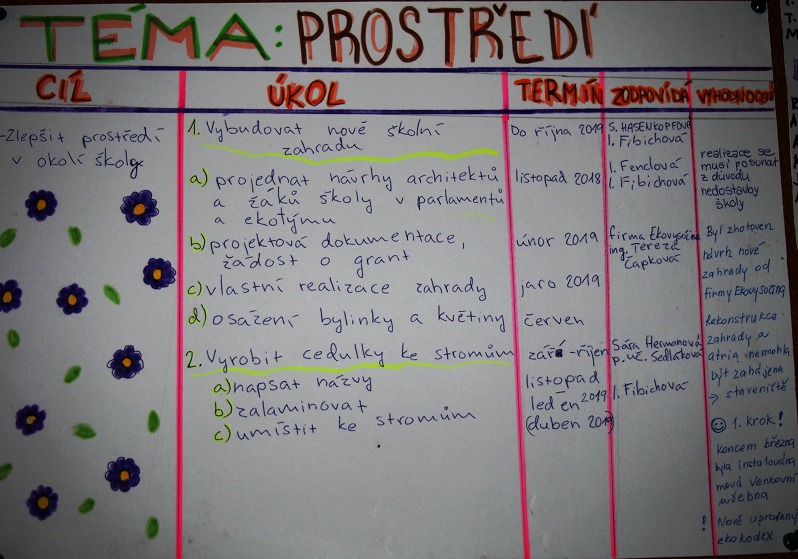 TÉMA: PROSTŘEDÍ
CÍL
ÚKOL
TERMÍN
ZODPOVÍDÁ
VYHODNOCENÍ
-Zlepšit prostředí
v okolí školy
1. Vybudovat nové školní
zahradu
a) projednat návrhy architektů
a žáků školy v parlamentů
a ekotýmu
b) projektová dokumentace,
žádost o grant
c) vlastní realizace zahrady
d) osázení bylinky a květiny
2. Vyrobit cedulky ke stromům
a) napsat názvy
b) zalaminovat
c) umístit ke stromům
Do října 2019
listopad 2018
únor 2019
jaro 2019
červen
září - říjen
listopad
leden 2019
(duben 2019)
S. HASENKOPFOVÁ
I. Fibichová
I. Fenclová
I. Fibichová
firma Ekovysočina
ing. Tereza
Čapková
Sára Hermanová
p. uč. Sedláková
I. Fibichová
realizace se
musí posunat
z důvodu
nedostavby
školy
Byl zhotoven
návrh nové
zahrady od
firmy Ekovysočina
Rekonstrukce
zahrady a
atria nemohla
být zahájena
→ staveniště
☺ 1. krok!
koncem března
byla instalována
nová venkovní
učebna
! Nově upravený
ekokodex